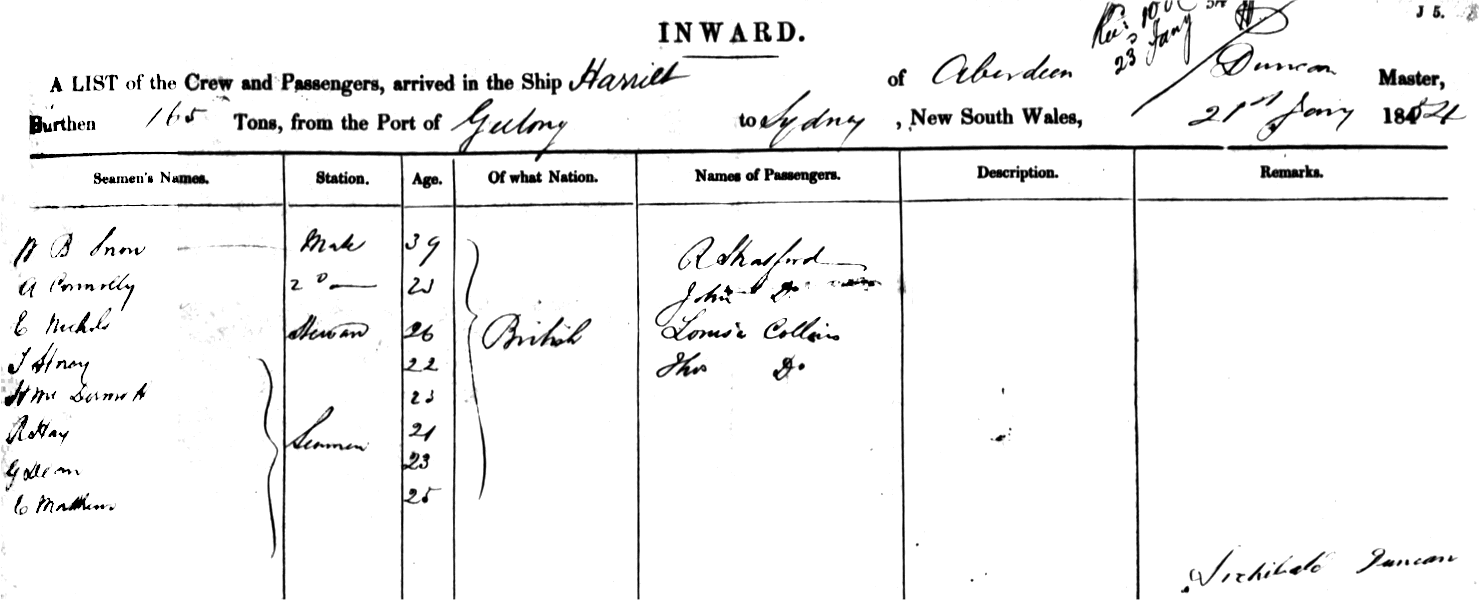 INWARD.
J 5.
23 Jany
A LIST of the Crew and Passengers, arrived in the Ship Harriett of Aberdeen Duncan Master,
Burthen 165 Tons, from the Port of Geelong to Sydney, New South Wales, 21st Jany 1854
Seamen's Names. Station. Age. Of what Nation. Names of Passengers. Description. Remarks.
B Snow Mate 39 R Shatford
A Connolly 2 Do 23 John Do
E Nichols Steward 26 British Louisa Collins
22 Thos Do
H McDermott 23
R Hay Seamen 21
G Dean 23
E Matthews 25
Archibald Duncan